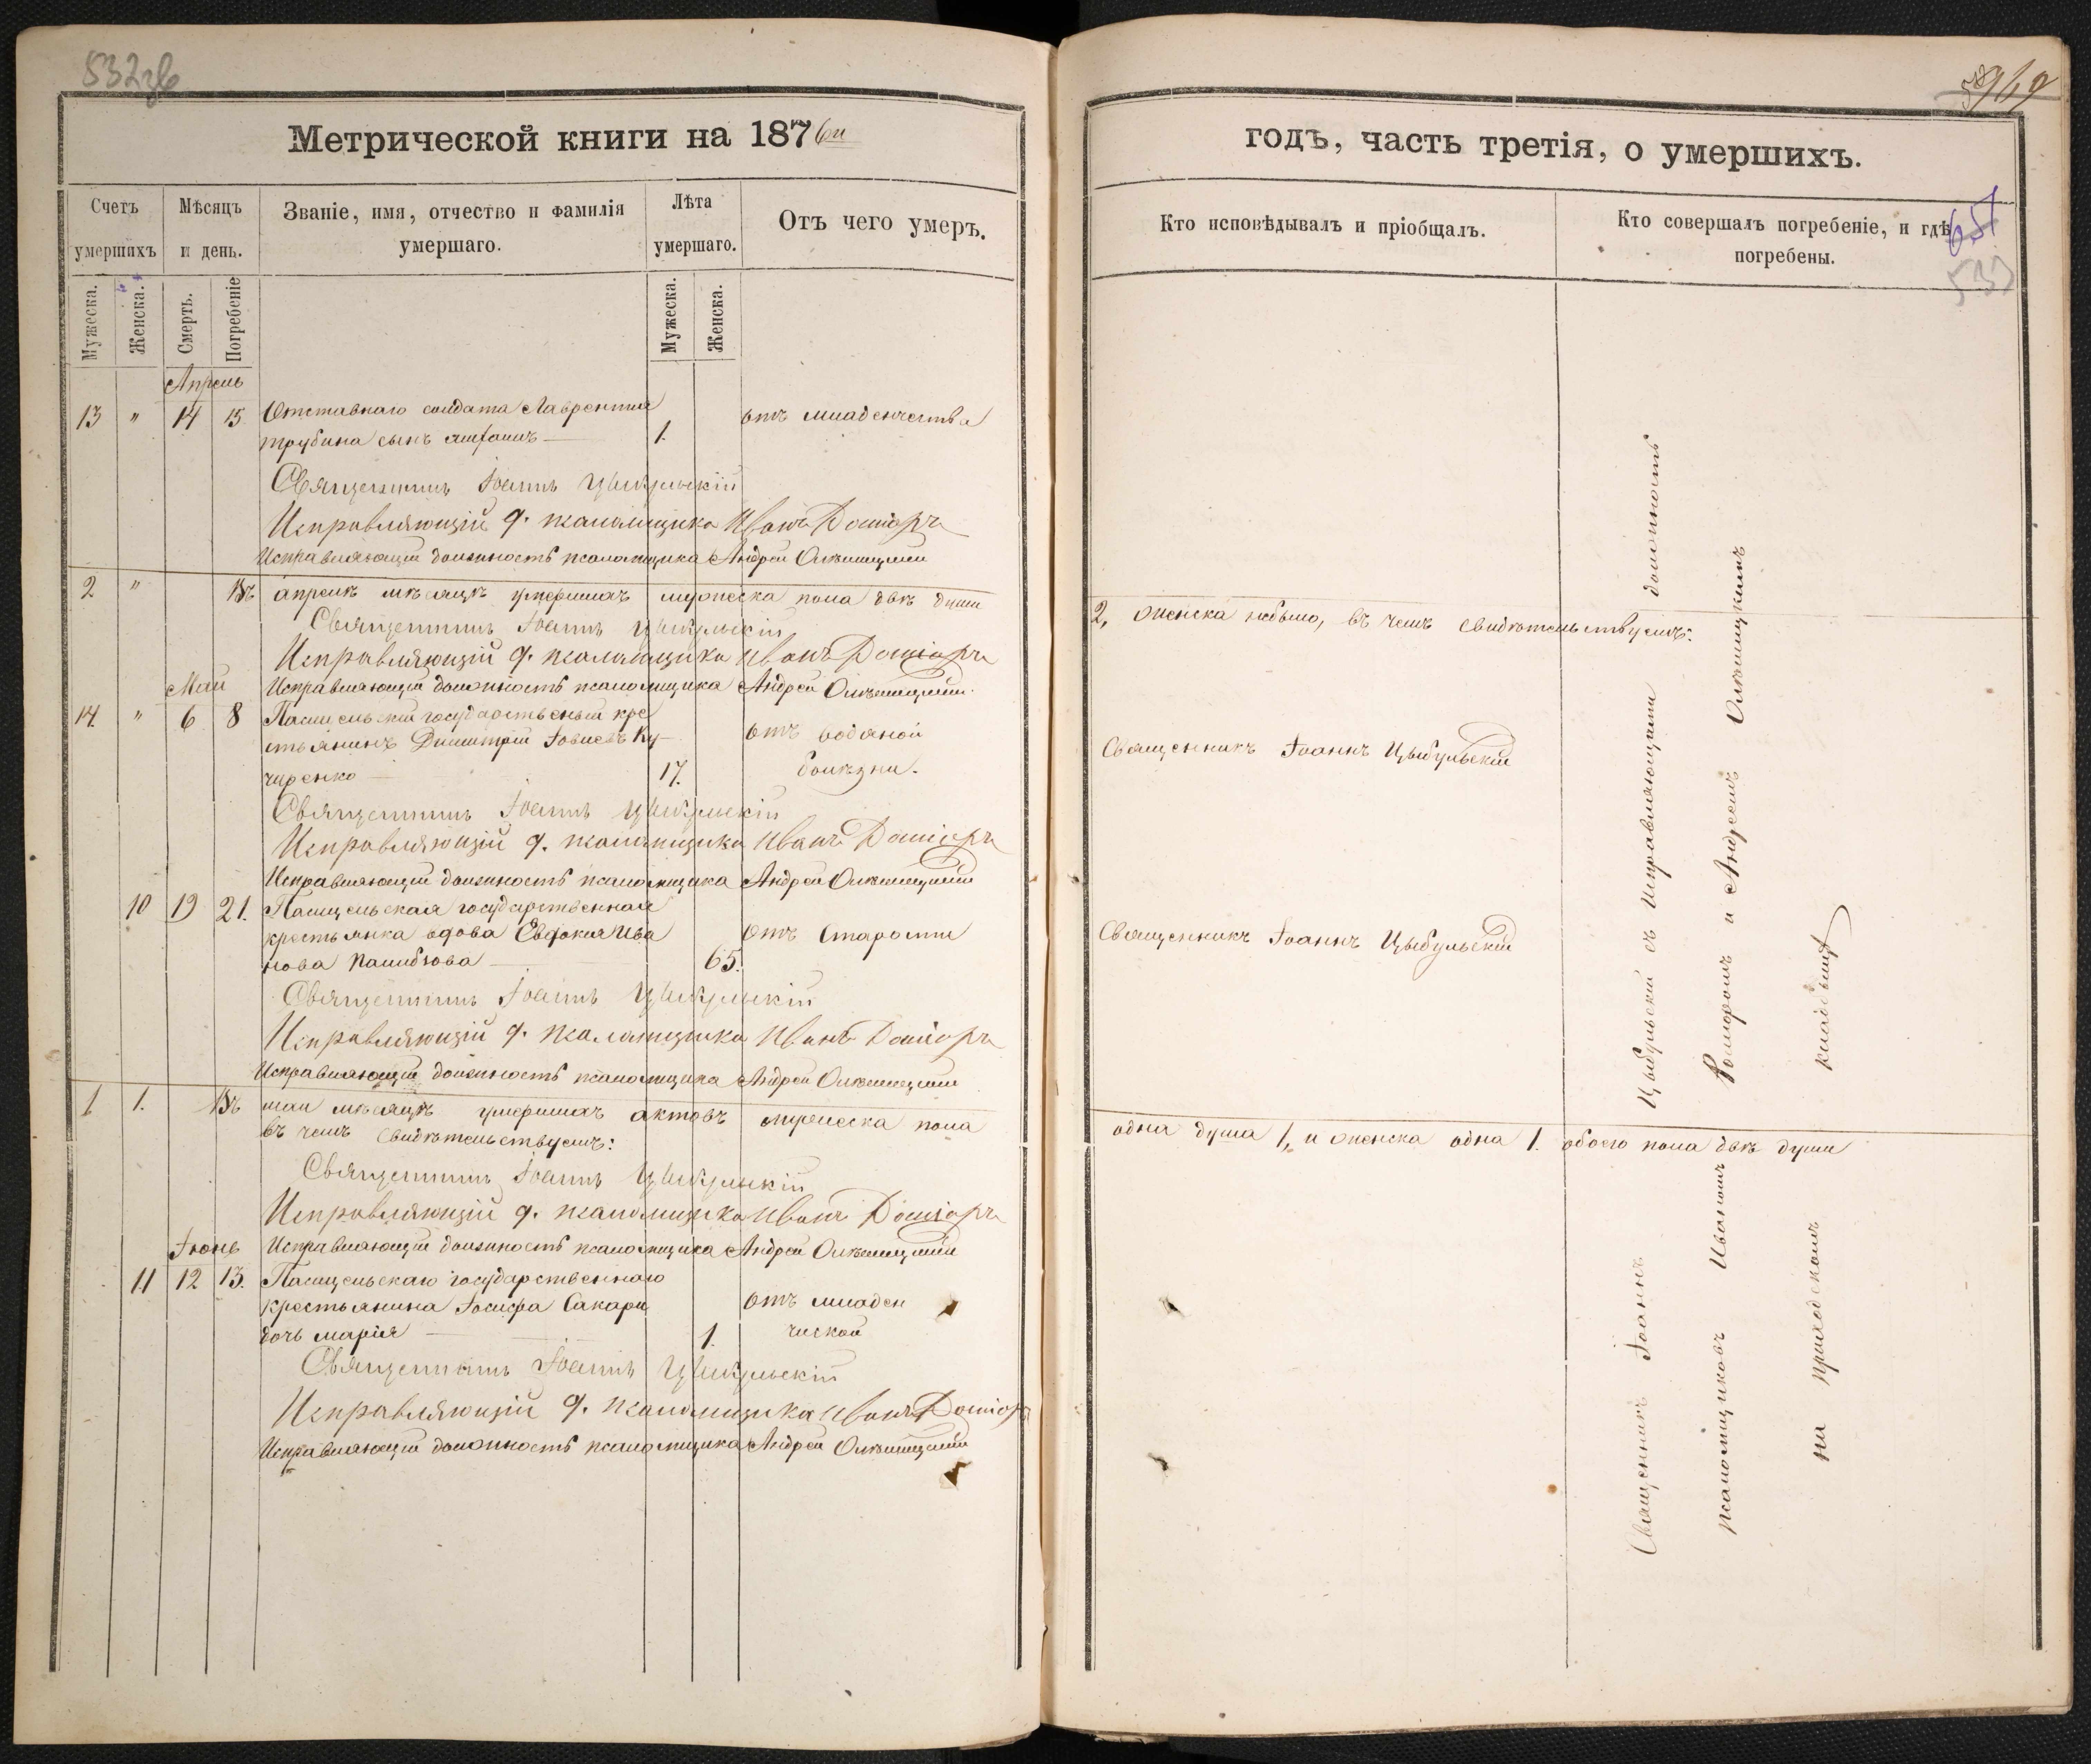 532зв
Метрической книги на 1876й
Счетъ умершихъ
Мѣсяцъ и день.
Званіе, имя, отчество и фамилія умершаго.
Лѣта умершаго.
Отъ чего умеръ.
Мужеска.
Женска.
Смерть.
Погребеніе
Мужеска.
Женска.
Апрель
13 " 14 15 Отставнаго солдата Лаврентія 1. отъ младенчества
трубина сынъ
Священникъ Іоаннъ Цыбульскій
Исправляющій д. псаломщика Иванъ
Исправляющій должность псаломщика Андрей
2 " Въ апрелѣ мѣсяцѣ умершихъ мужеска пола двѣ души
Священникъ Іоаннъ Цыбульскій
Исправляющій д. псаломщика Иванъ
Май Исправляющій должность псаломщика Андрей
14 " 6 8 государственый кре
стьянинъ Димитрій Іовіевъ Ку отъ водяной
черенко 17. болѣзни.
Священникъ Іоаннъ Цыбульскій
Исправляющій д. псаломщика Иванъ
Исправляющій должность псаломщика Андрей
10 19 21. государственная
крестьянка вдова Евдокия Ива отъ Старости
нова 65.
Священникъ Іоаннъ Цыбульскій
Исправляющій д. псаломщика Иванъ
Исправляющій должность псаломщика Андрей
1 1. Въ маи мѣсяцѣ умершихъ актовъ мужеска пола
въ чемъ свидѣтельствуемъ:
Священникъ Іоаннъ Цыбульскій
Исправляющій д. псаломщика Иванъ
Іюнь Исправляющій должность псаломщика Андрей
11 12 13. государственнаго
крестьянина Іосифа Сакары отъ младен
дочь Марія 1. ческой
Священникъ Іоаннъ Цыбульскій
Исправляющій д. псаломщика Иванъ
Исправляющій должность псаломщика Андрей
годъ, часть третія, о умершихъ.
Кто исповѣдывалъ и пріобщалъ.
Кто совершалъ погребеніе, и гдѣ погребены.
651
533
2, женска небыло, въ чемъ свидѣтельствуемъ:
Священникъ Іоаннъ Цыбульскій
Священникъ Іоаннъ Цыбульскій
одна душа 1, и женска одна 1. обоего пола двѣ души
Священникъ Іоаннъ Цыбульскій съ исправляющими должность
псаломщиковъ Иваномъ и Андреемъ
на приходскомъ кладбищѣ